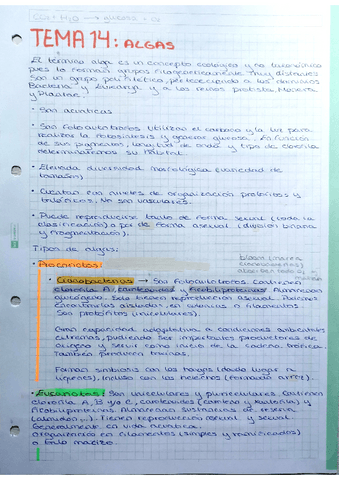 CO2 + H2O → glucosa + O2
TEMA 14: ALGAS
El término alga es un concepto ecológico y no taxonómico
pues lo forman grupos filogenéticamente muy distintos
Son un grupo polifilético, perteneciendo a los dominios
Bacteria y Eukarya y a los reinos protista, Monera
y Plantae.
• Son acuáticas
• Son fotoautótrofos. Utilizan el carbono y la luz para
realizar la fotosíntesis y generar glucosa. En función
de sus pigmentos, longitud de onda y tipo de clorofila
determinaremos su hábitat.
• Elevada diversidad morfológica (variedad de
tamaños)
• Cuentan con niveles de organización protófitos y
talofíticos. No son vasculares.
• Puede reproducirse tanto de forma sexual (toda la
clasificación) o por de forma asexual (división binaria
y fragmentación)
Tipos de algas:
• Procariotas:
• Cianobacterias → Son fotoautótrofos. Contienen
clorofila A, carotenoides y ficobiliproteínas. Almacenan
glucógeno. Solo tienen reproducción asexual. Podemos
encontrarlas aisladas, en colonias o filamentos.
Son protófitos (unicelulares)
Gran capacidad adaptativa a condiciones ambientales
extremas, pudiendo ser importantes productores de
oxígeno y servir como inicio de la cadena trófica.
También producen toxinas.
Forman simbiosis con los hongos (dando lugar a
líquenes), incluso con los helechos (formando arroz).
• Eucariotas: Son unicelulares y pluricelulares. Contienen
clorofila A, B y/o C, carotenoides (caroteno y xantofila) y
ficobiliproteínas. Almacenan sustancias de reserva
(almidón...). Tienen reproducción sexual y asexual.
Generalmente en vida acuática.
Organización en filamentos (simples y ramificados)
o talo macizo.